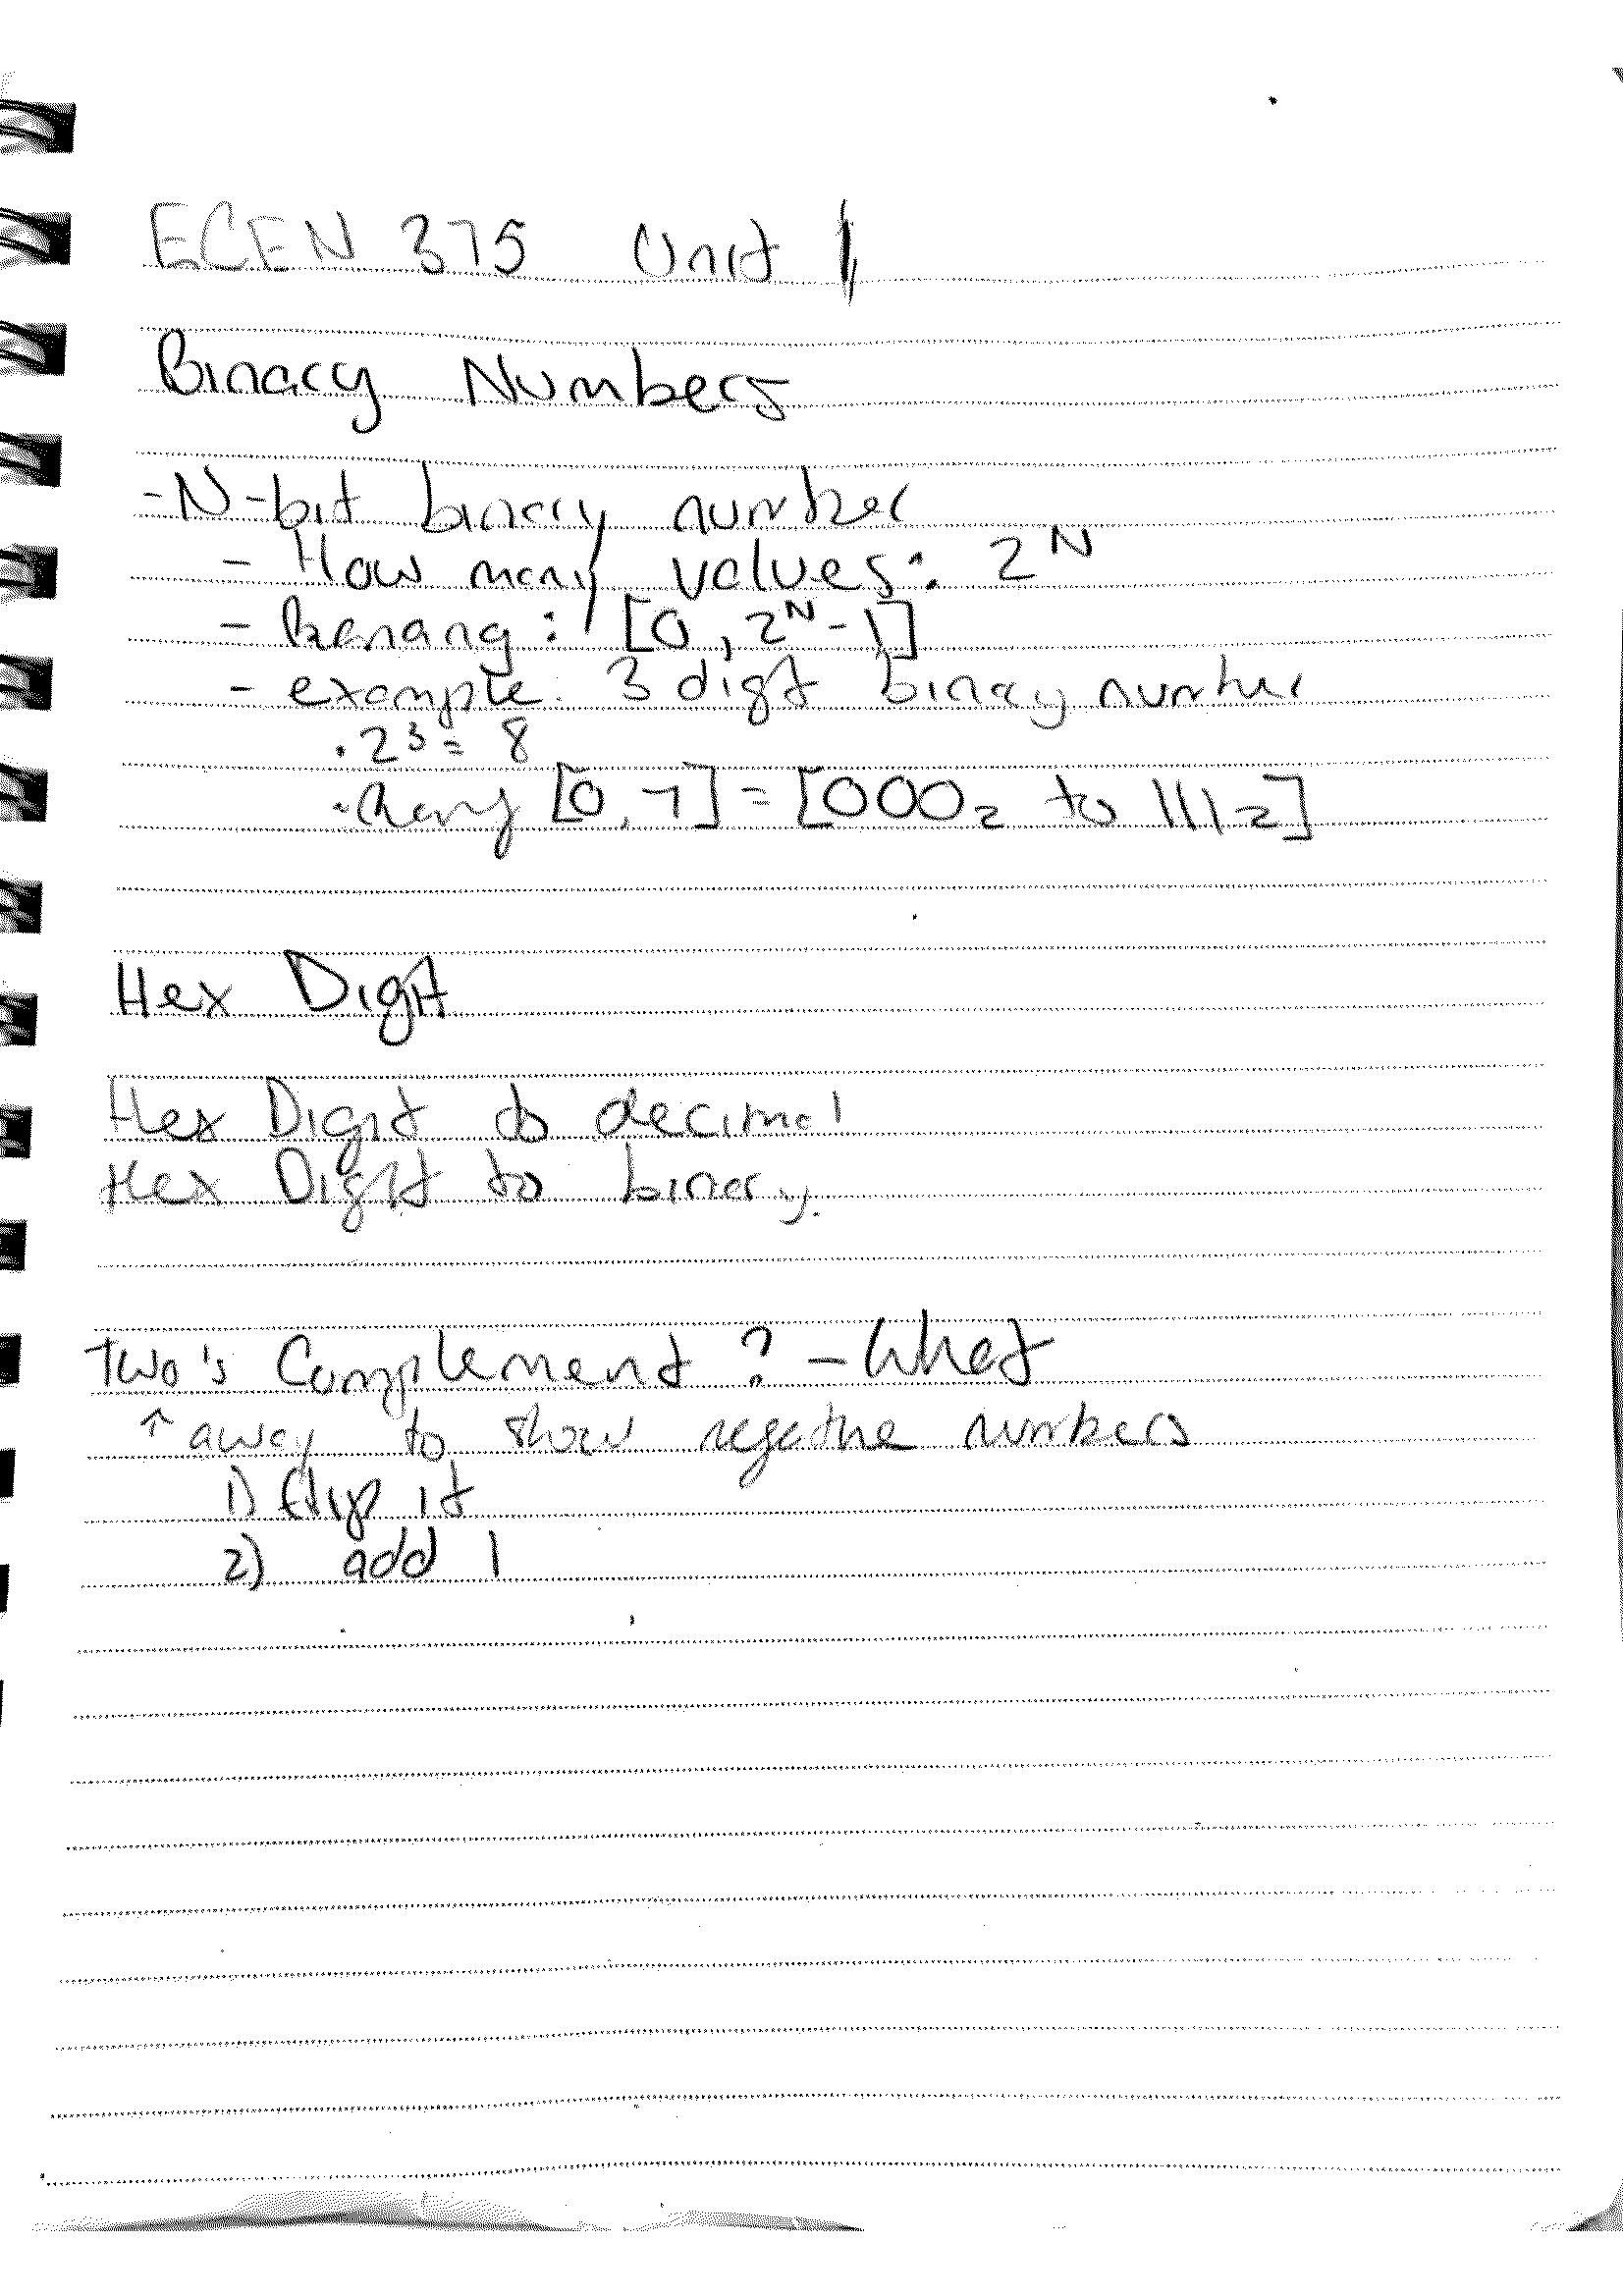 ECEN 375 Unit 1
Binary Numbers
-N-bit binary number
- How many values: 2^N
- : [0, 2^N-1]
- example: 3 digit binary number
· 2³ = 8
· [0, 7] = [000₂ to 111₂]
Hex Digit
Hex Digit to decimal
Hex Digit to binary.
Two's Complement ? - What
↑ away to show negative numbers
1) flip it
2) add 1